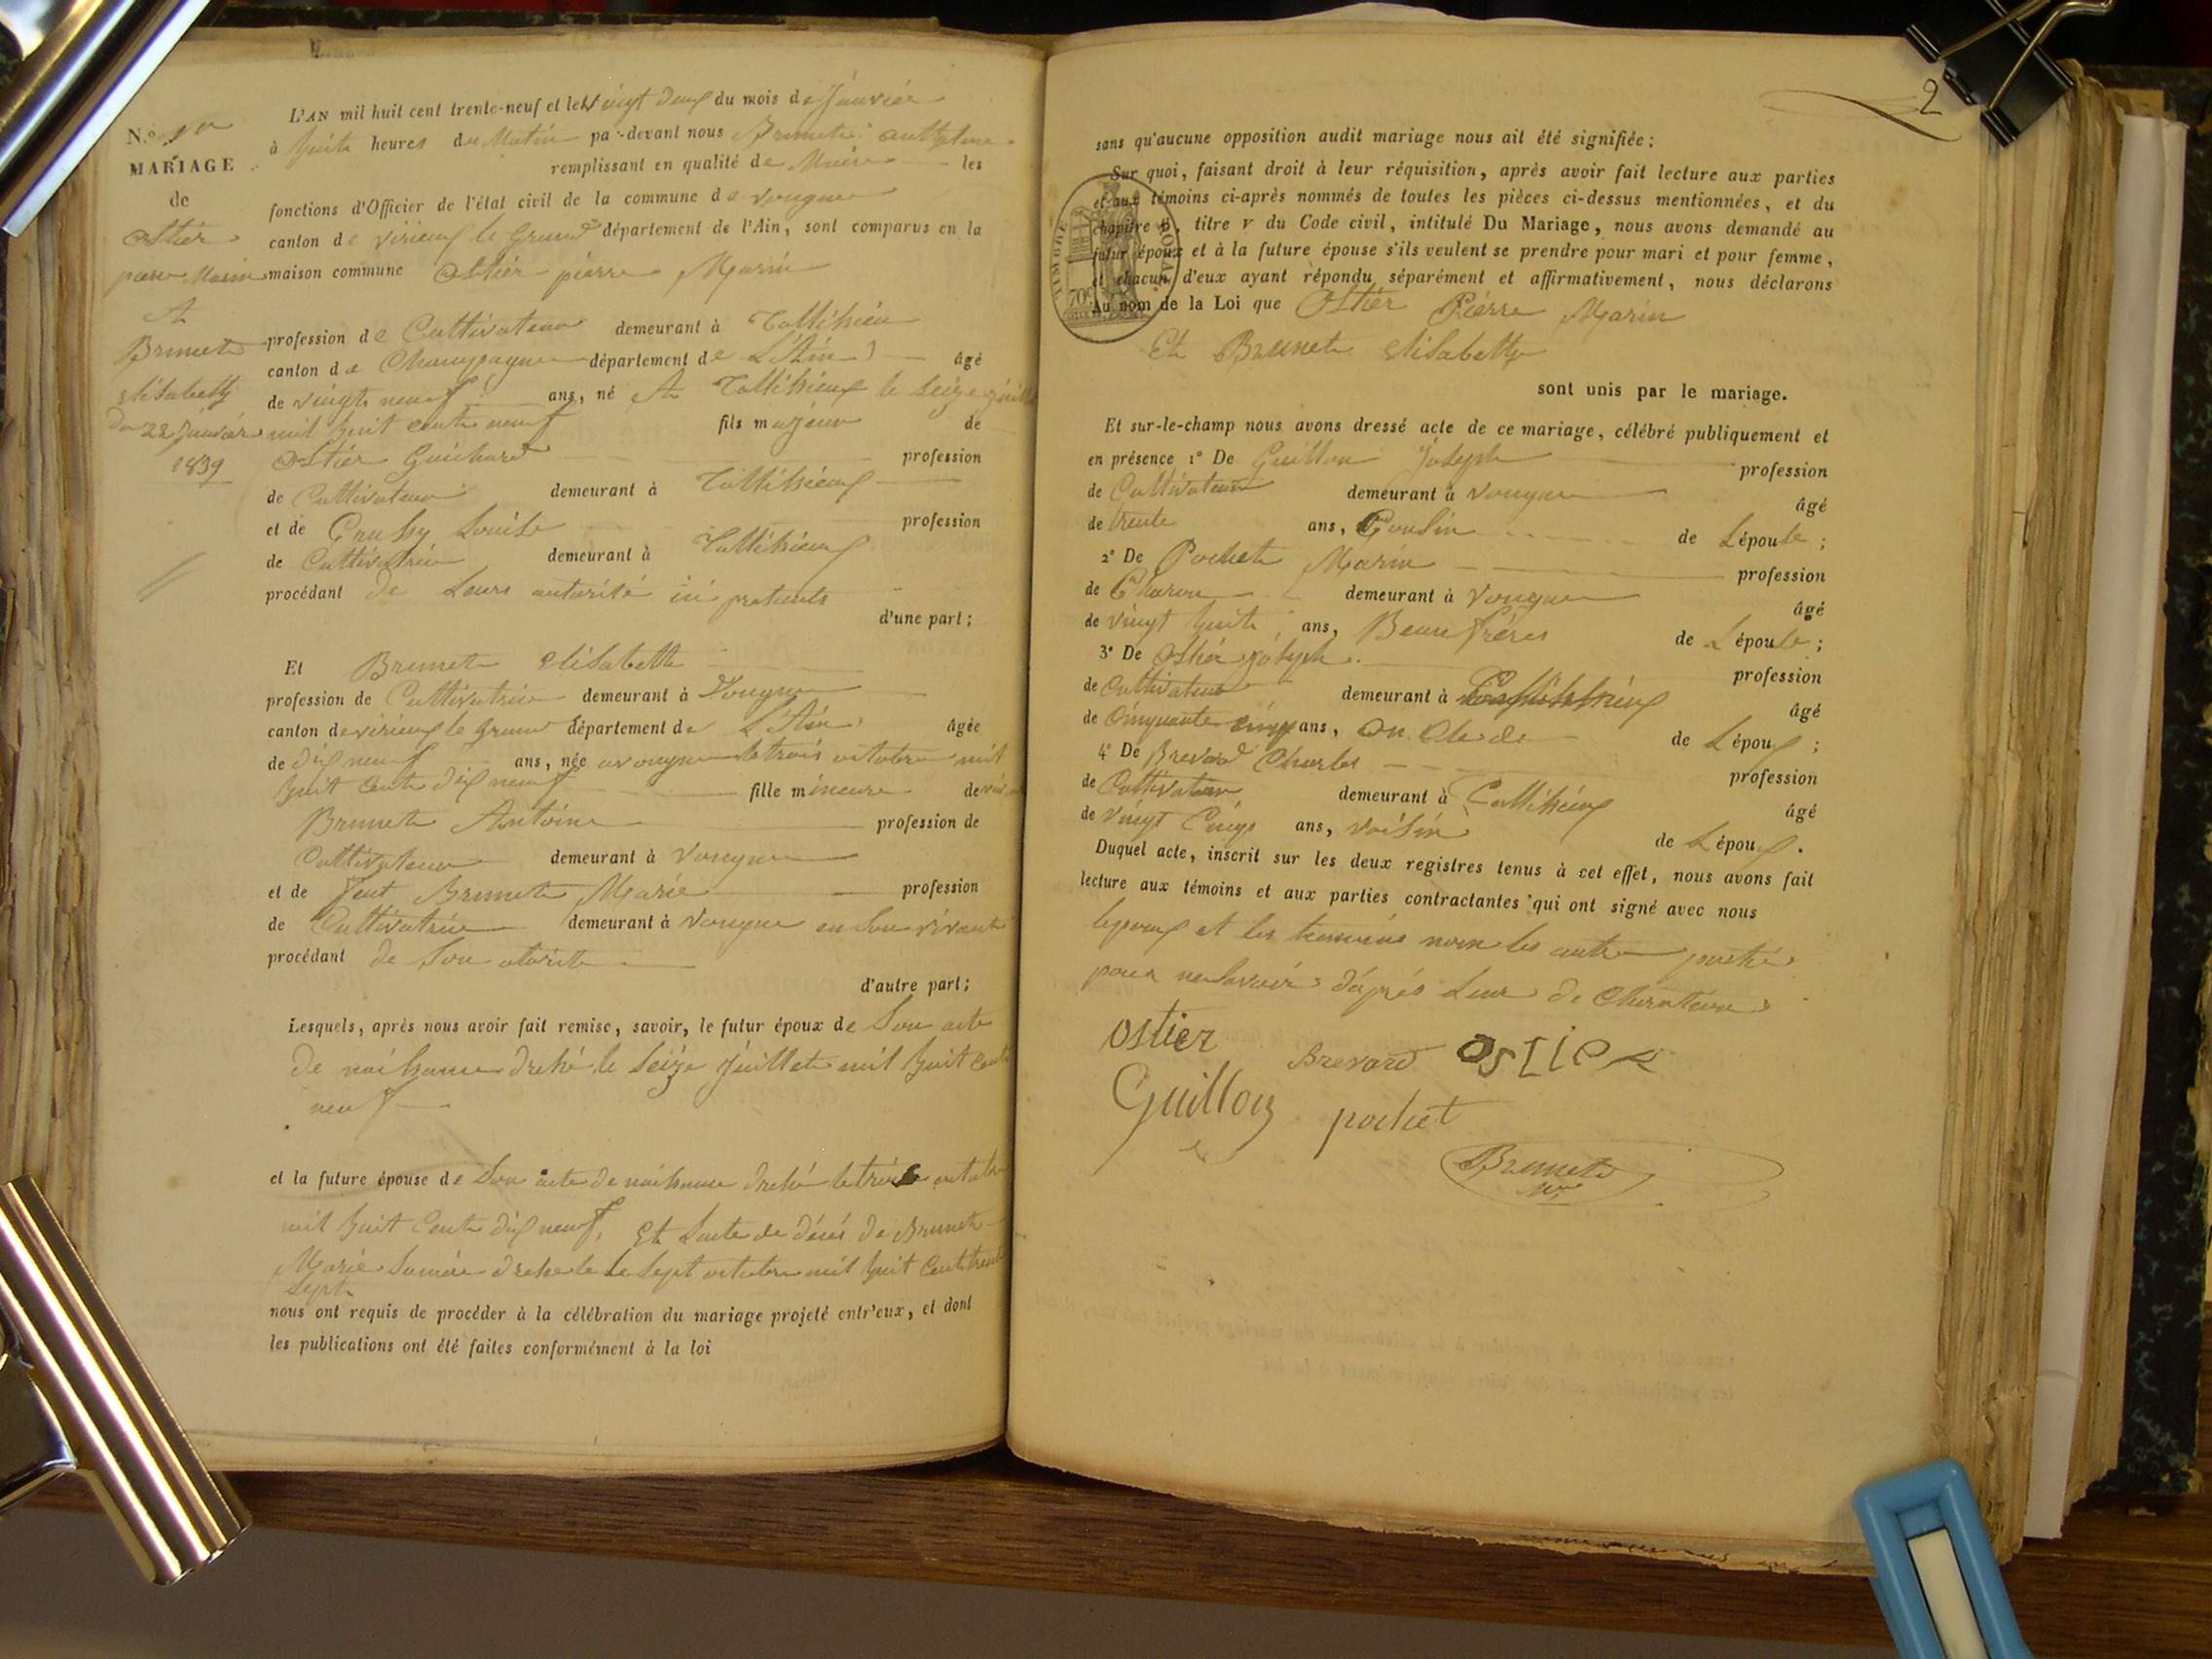 L'AN mil huit cent trente-neuf et le vingt deux du mois de Janvier
N.º 1er
à huit heures du Matin par-devant nous Brunet anthelme
MARIAGE
remplissant en qualité de Maire les
de
fonctions d'Officier de l'état civil de la commune de vongne
Ostier
canton de virieux le Grand département de l'Ain, sont comparus en la
pierre Marin
maison commune Ostier pierre Marin
Et
profession de Cultivateur demeurant à Tallissieu
Brunet
canton de Champagne département de L'Ain âgé
elisabeth
de vingt neuf ans, né A Tallissieux le seize juillet
du 22 Janvier
mil huit cent neuf fils majeur de
1839
Ostier Guichard profession
de Cultivateur demeurant à Tallissieux
et de Louise profession
de Cultivatrice demeurant à Tallissieux
procédant de Leurs autorité ici présents
d'une part;
Et Brunet elisabeth
profession de Cultivatrice demeurant à Vongne
canton de virieux le grand département de L'Ain âgée
de dix neuf ans, née a vongne le trois octobre mil
huit cent dix neuf fille mineure de
Brunet Antoine profession de
Cultivateur demeurant à Vongne
et de feut Brunet Marie profession
de Cultivatrice demeurant à Vongne en son vivant
procédant de Son otorité
d'autre part;
Lesquels, après nous avoir fait remise, savoir, le futur époux de Son acte
de naissance dressé le seize Juillet mil huit cent
neuf
et la future épouse de Son acte de naissance dressé le trois octobre
mil huit Cent dix neuf, Et Lacte de décés de Brunet
Marie sa mère dressé le sept octobre mil huit Cent trente
sept
nous ont requis de procéder à la célébration du mariage projeté entr'eux, et dont
les publications ont été faites conformément à la loi
2
sans qu'aucune opposition audit mariage nous ait été signifiée;
Sur quoi, faisant droit à leur réquisition, après avoir fait lecture aux parties
et aux témoins ci-après nommés de toutes les pièces ci-dessus mentionnées, et du
chapitre 6, titre v du Code civil, intitulé Du Mariage, nous avons demandé au
futur époux et à la future épouse s'ils veulent se prendre pour mari et pour femme,
et chacun d'eux ayant répondu séparément et affirmativement, nous déclarons
Au nom de la Loi que Ostier Pierre Marin
TIMBRE ROYAL
70c
Et Brunet elisabeth
sont unis par le mariage.
Et sur-le-champ nous avons dressé acte de ce mariage, célébré publiquement et
en présence 1º De Guillon Joseph profession
de Cultivateur demeurant à vongne âgé
de trente ans, Cousin de Lépouse;
2º De Pochet Marin profession
de Charon demeurant à Vongne âgé
de vingt huit ans, Beau frères de Lépouse;
3º De Ostier joseph profession
de Cultivateur demeurant à âgé
de Cinquante cinq ans, On Cle de de Lépoux;
4º De Brevard Charles profession
de Cultivateur demeurant à Tallissieux âgé
de vingt Cinqs ans, voisin de Lépoux.
Duquel acte, inscrit sur les deux registres tenus à cet effet, nous avons fait
lecture aux témoins et aux parties contractantes qui ont signé avec nous
lepoux et les temoins non les autre partie
pour ne savoir d'après Leur de Claration
ostier Brevard osTier
Guillon pochet
Brunet
mre